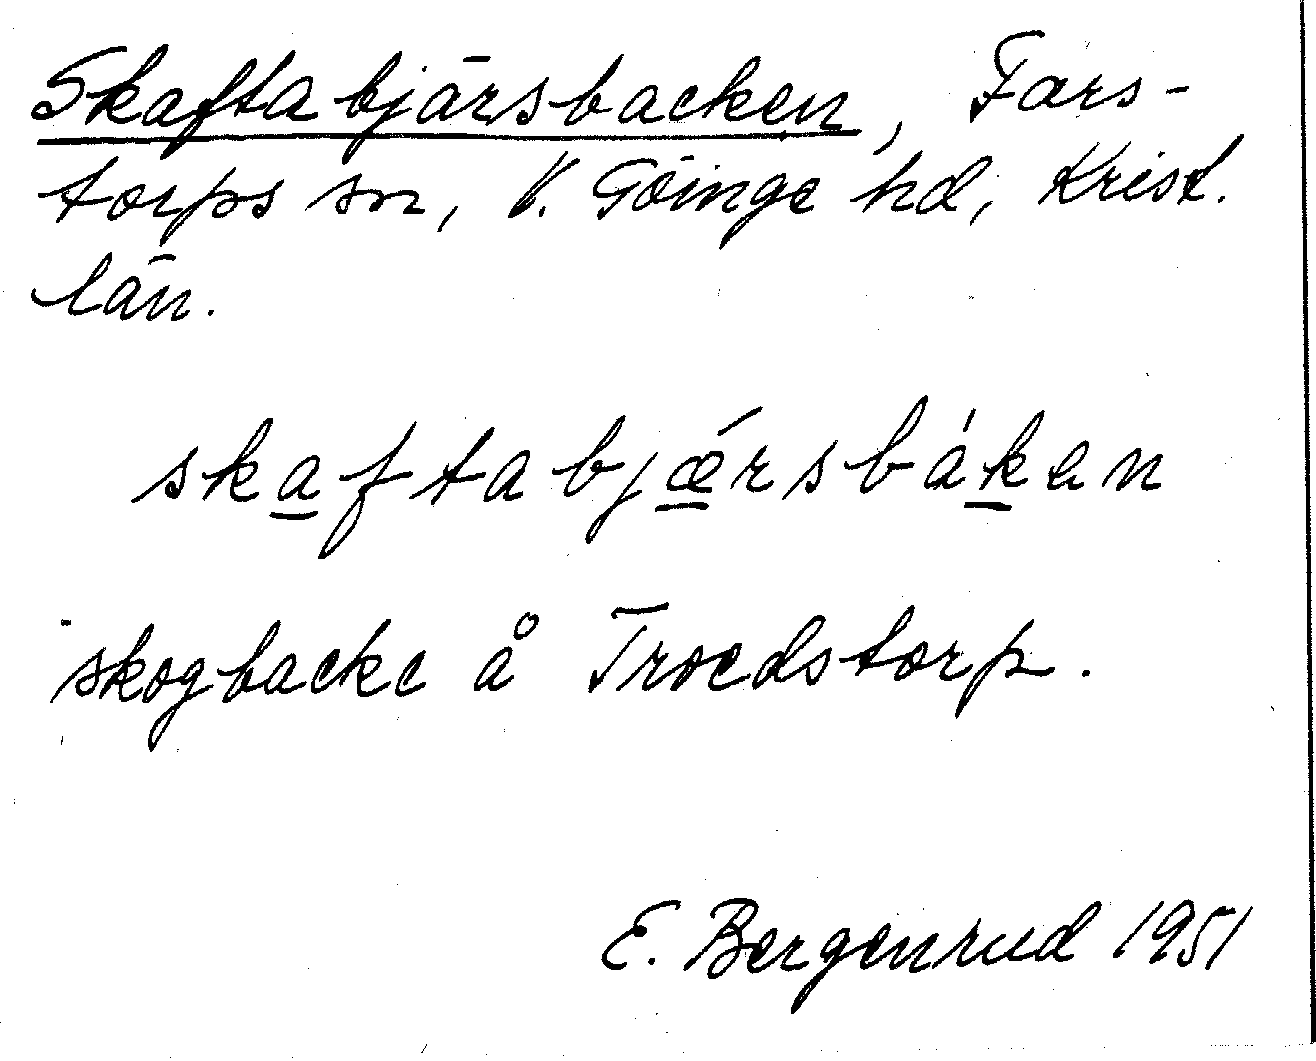 Skaftabjärsbacken, Fars-
torps sn, V. Göinge hd, Krist.
län.
skaftabjǽrsbákan
skogbacke å Troedstorp.
E. Bergenrud 1951